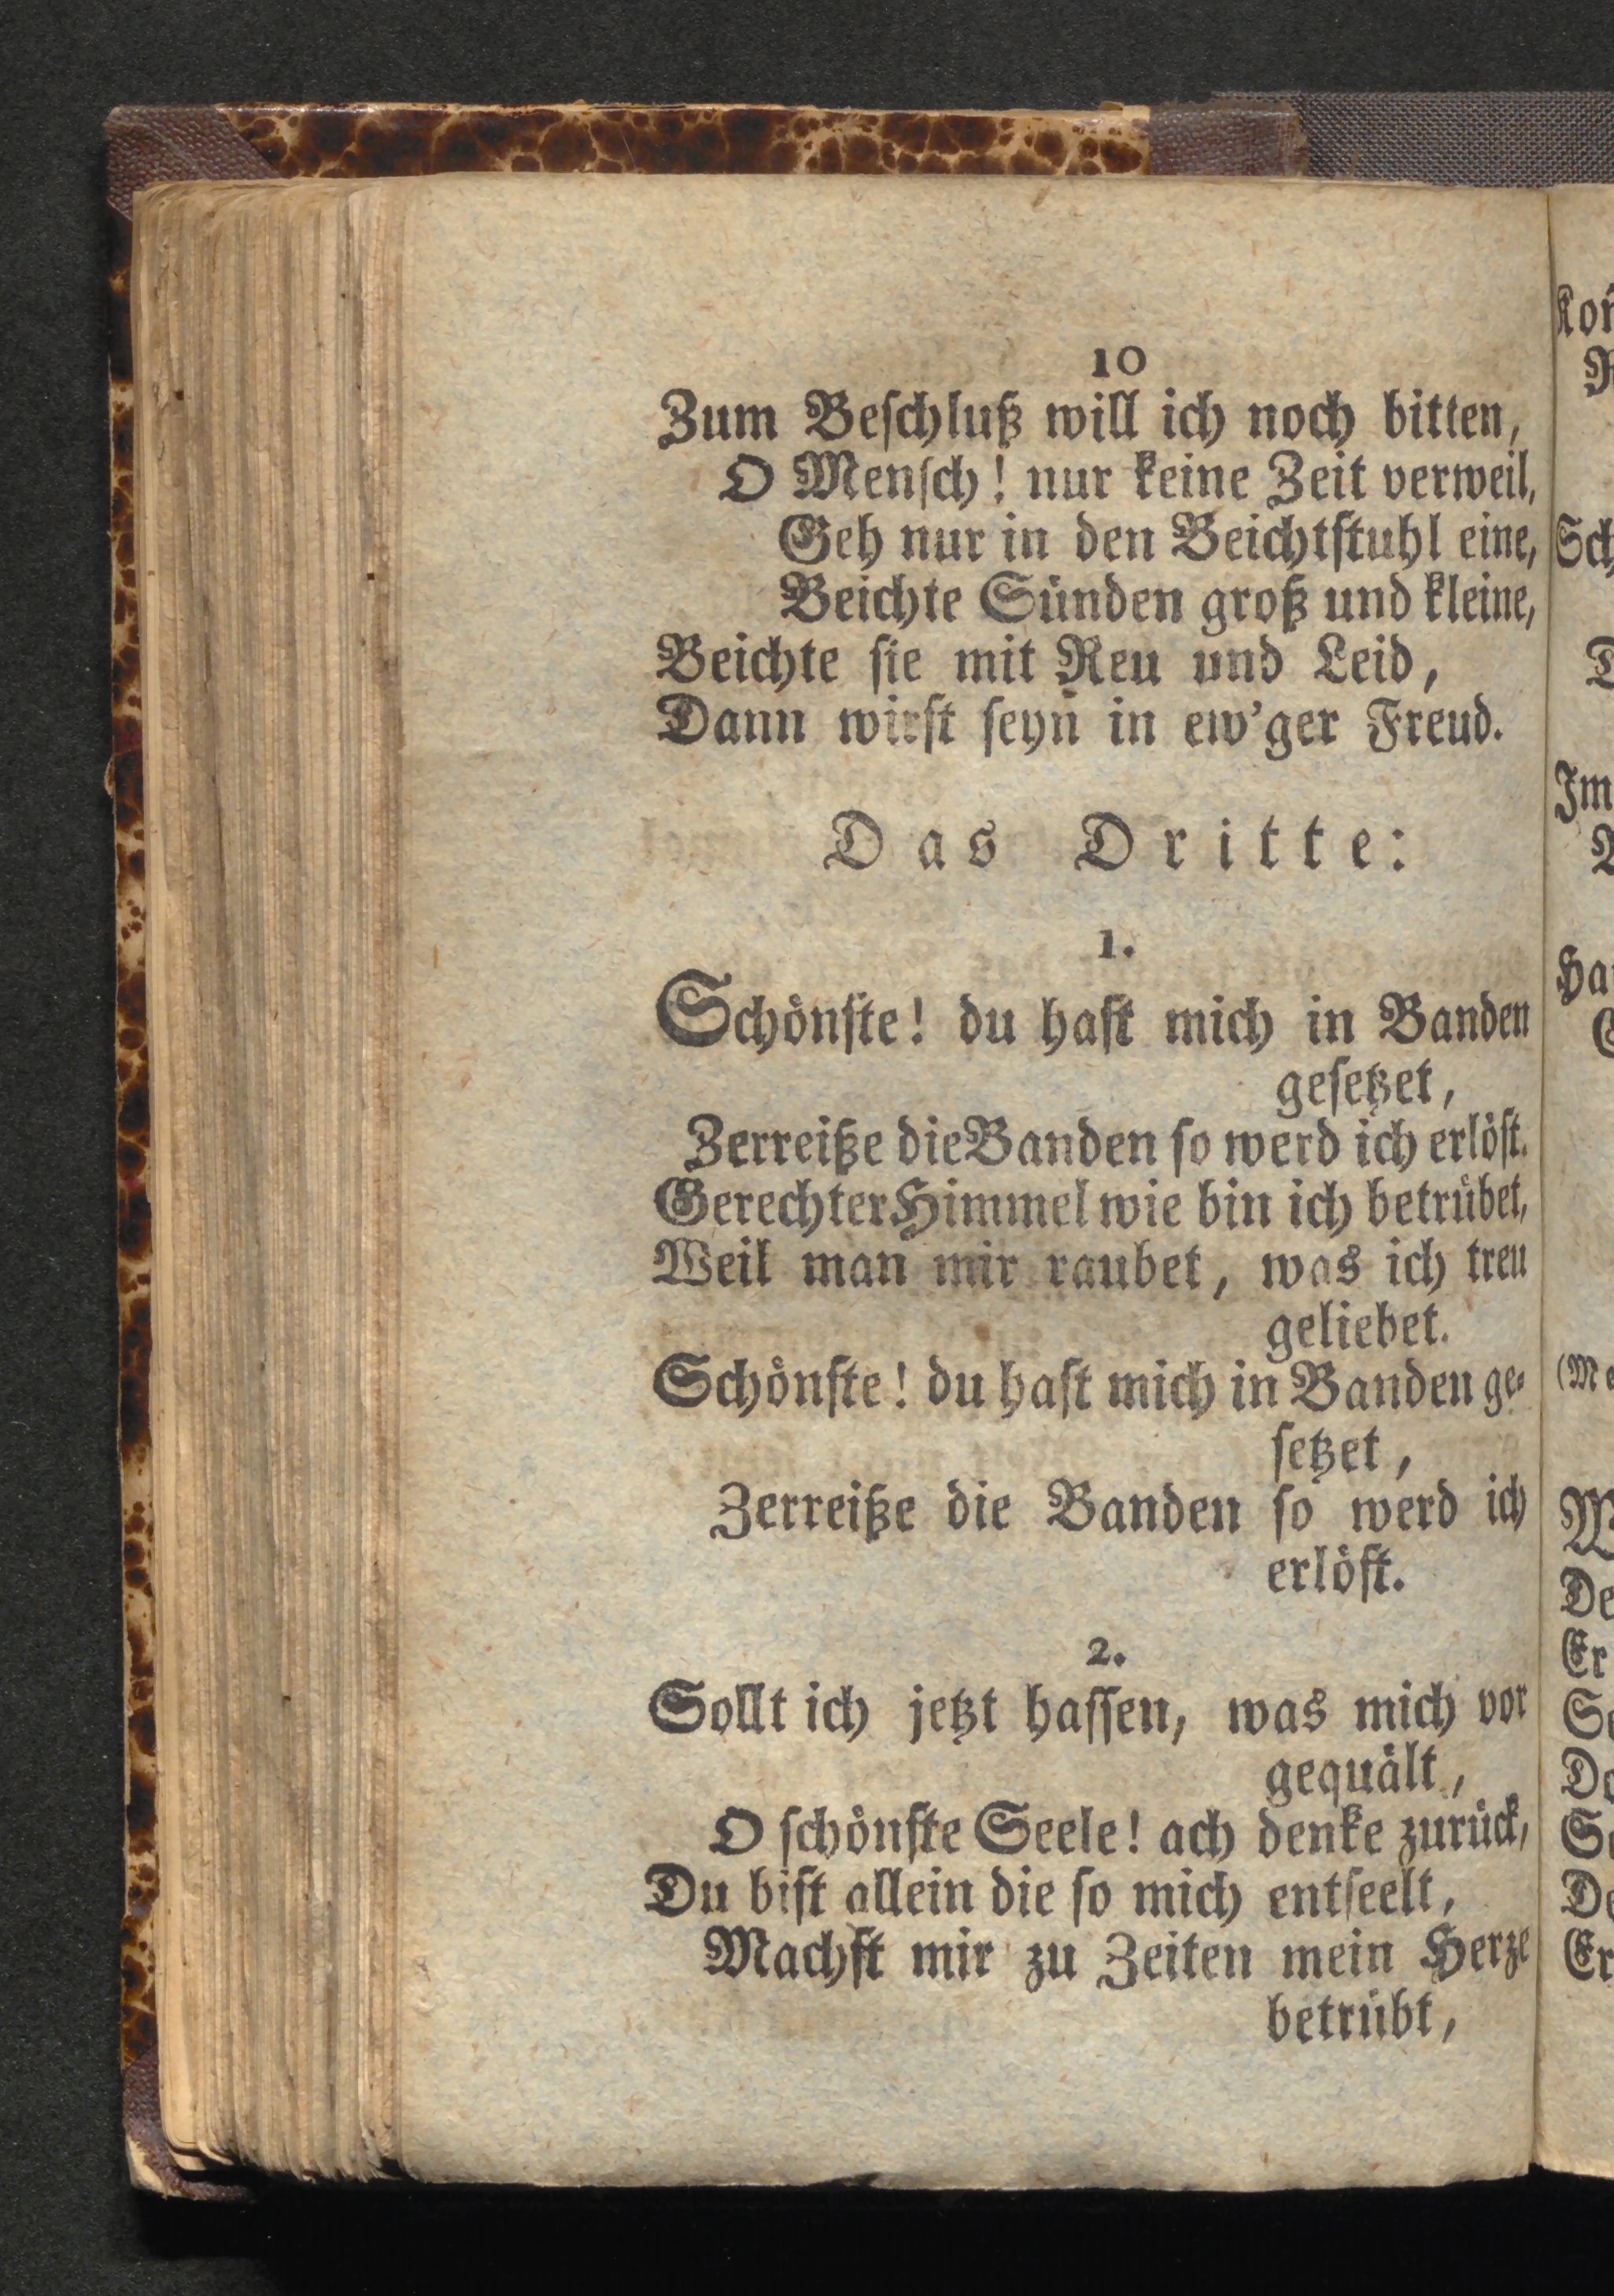 10
Zum Beschluß will ich noch bitten,
O Mensch! nur keine Zeit verweil,
Geh nur in den Beichtstuhl eine,
Beichte Sünden groß und kleine,
Beichte sie mit Reu und Leid,
Dann wirst seyn in ew'ger Freud.
Das Dritte:
1.
Schönste! du hast mich in Banden
gesetzet,
Zerreiße die Banden so werd ich erlöst.
Gerechter Himmel wie bin ich betrübet,
Weil man mir raubet, was ich treu
geliebet.
Schönste! du hast mich in Banden ge-
setzet,
Zerreiße die Banden so werd ich
erlöst.
2.
Sollt ich jetzt hassen, was mich vor
gequält,
O schönste Seele! ach denke zurück,
Du bist allein die so mich entseelt,
Machst mir zu Zeiten mein Herze
betrübt,